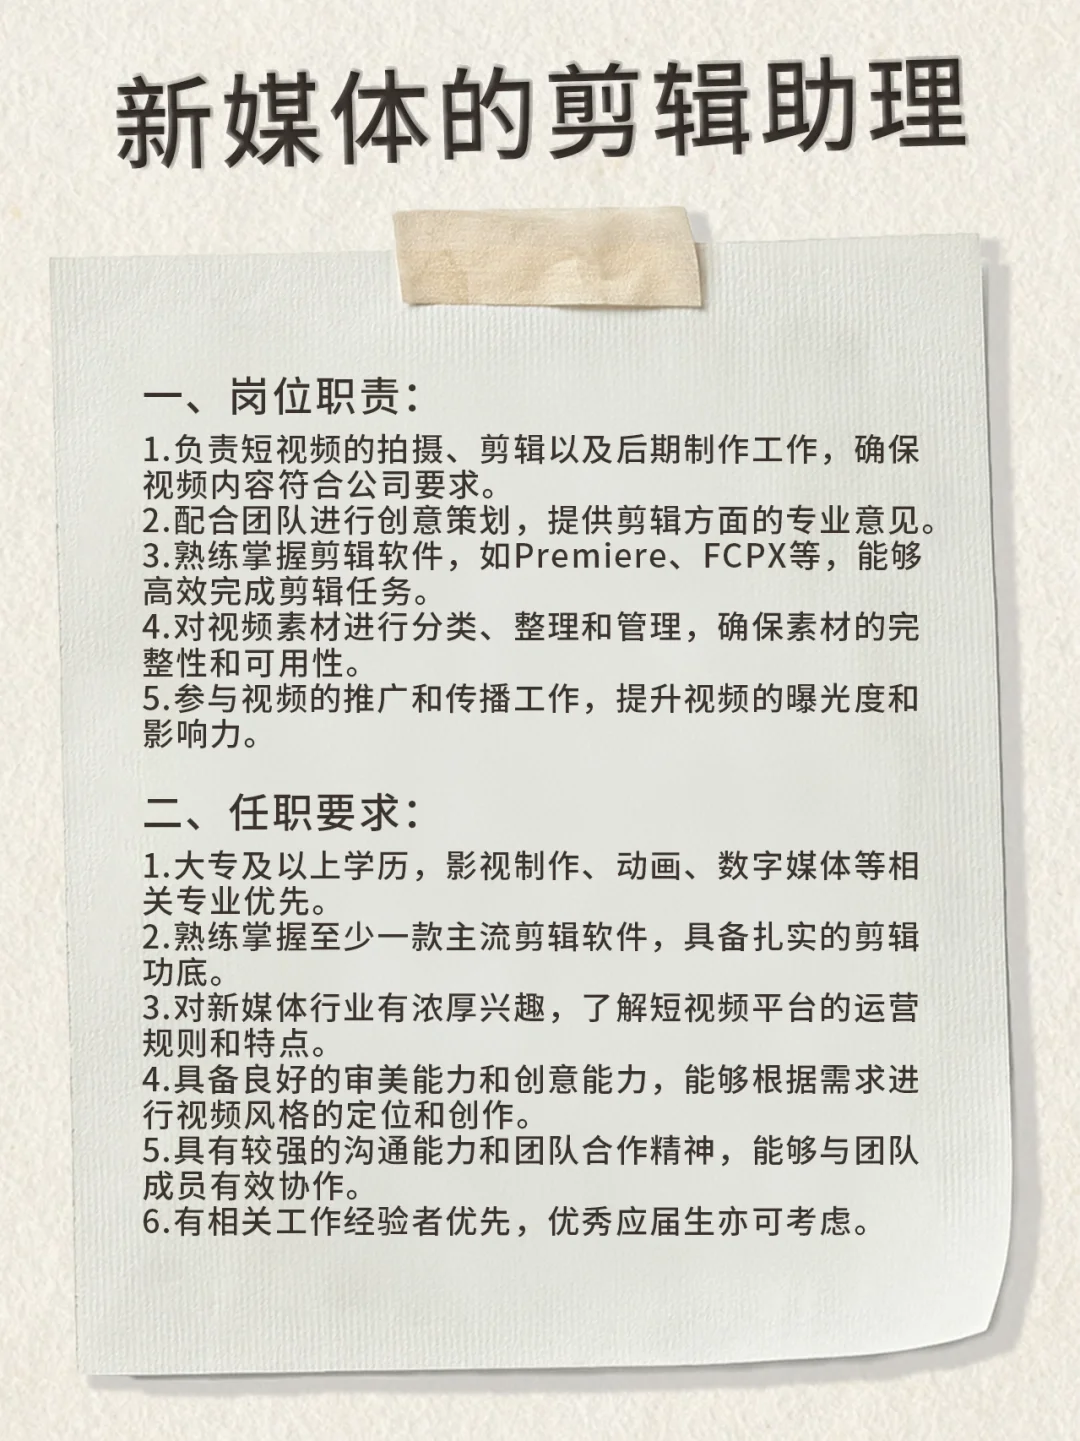 新媒体的剪辑助理
一、岗位职责：
1.负责短视频的拍摄、剪辑以及后期制作工作，确保
视频内容符合公司要求。
2.配合团队进行创意策划，提供剪辑方面的专业意见。
3.熟练掌握剪辑软件，如Premiere、FCPX等，能够
高效完成剪辑任务。
4.对视频素材进行分类、整理和管理，确保素材的完
整性和可用性。
5.参与视频的推广和传播工作，提升视频的曝光度和
影响力。
二、任职要求：
1.大专及以上学历，影视制作、动画、数字媒体等相
关专业优先。
2.熟练掌握至少一款主流剪辑软件，具备扎实的剪辑
功底。
3.对新媒体行业有浓厚兴趣，了解短视频平台的运营
规则和特点。
4.具备良好的审美能力和创意能力，能够根据需求进
行视频风格的定位和创作。
5.具有较强的沟通能力和团队合作精神，能够与团队
成员有效协作。
6.有相关工作经验者优先，优秀应届生亦可考虑。